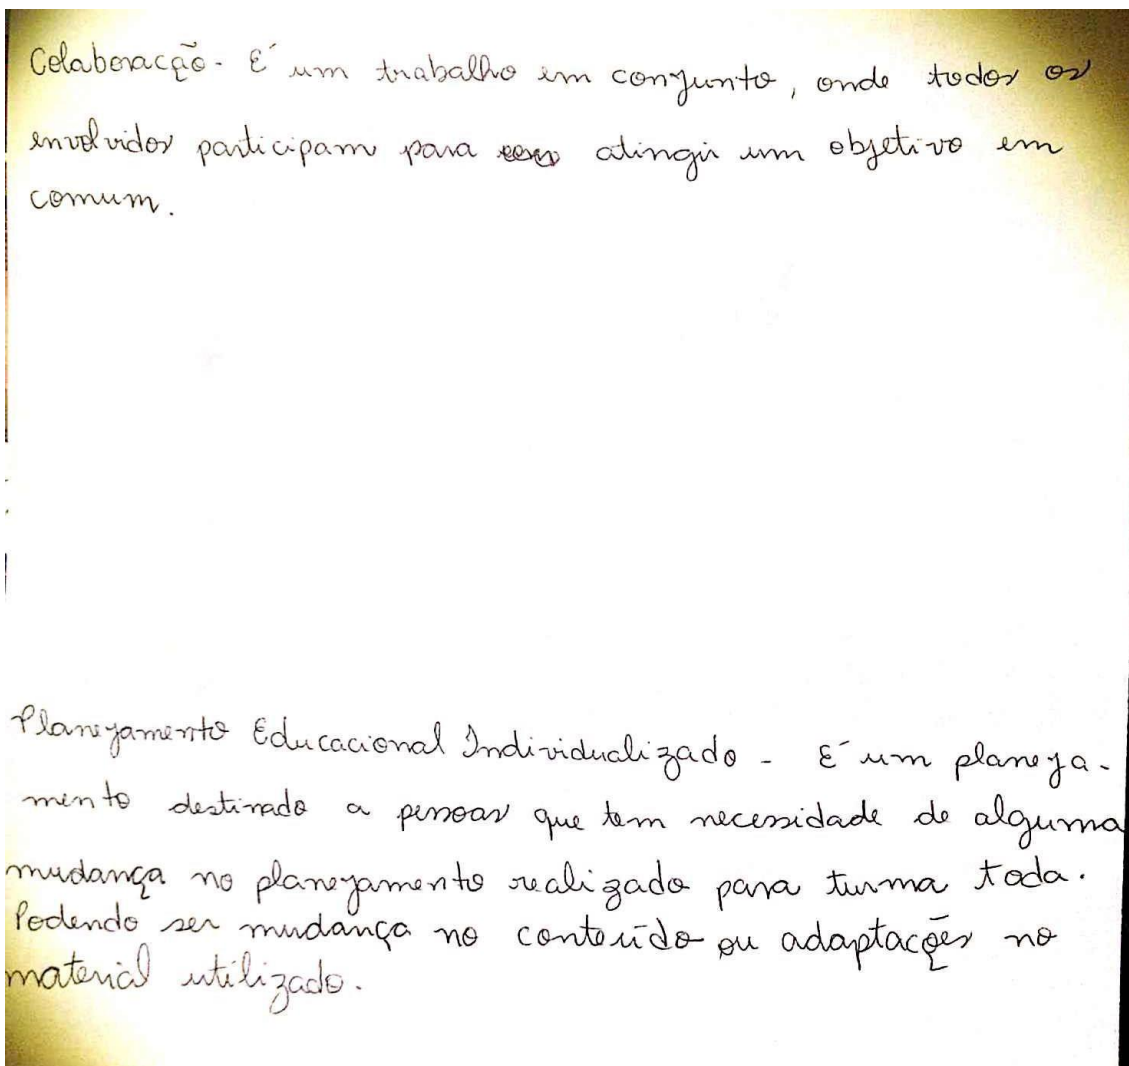 Colaboracção - É um trabalho em conjunto, onde todos os
envolvidos participam para atingir um objetivo em
comum.
Planejamento Educacional Individualizado - É um planeja-
mento destinado a pessoas que tem necessidade de alguma
mudança no planejamento realizado para turma toda.
Podendo ser mudança no conteúdo ou adaptações no
material utilizado.